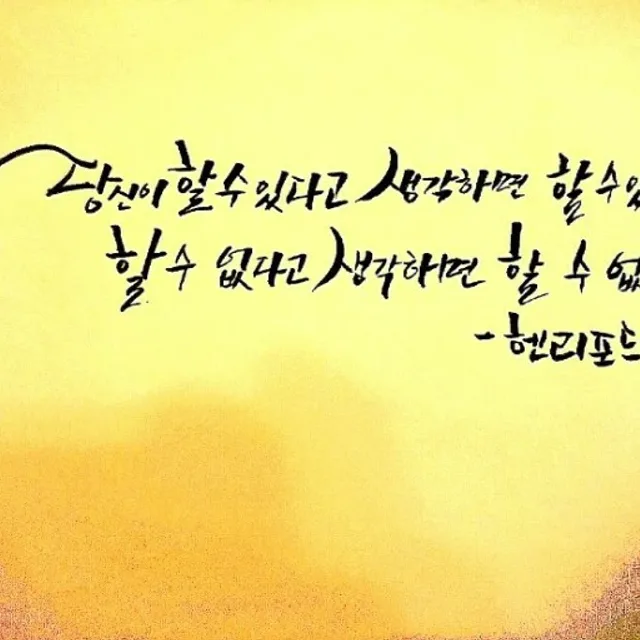 당신이 할 수 있다고 생각하면 할 수 있
할 수 없다고 생각하면 할 수 없
-헨리포드